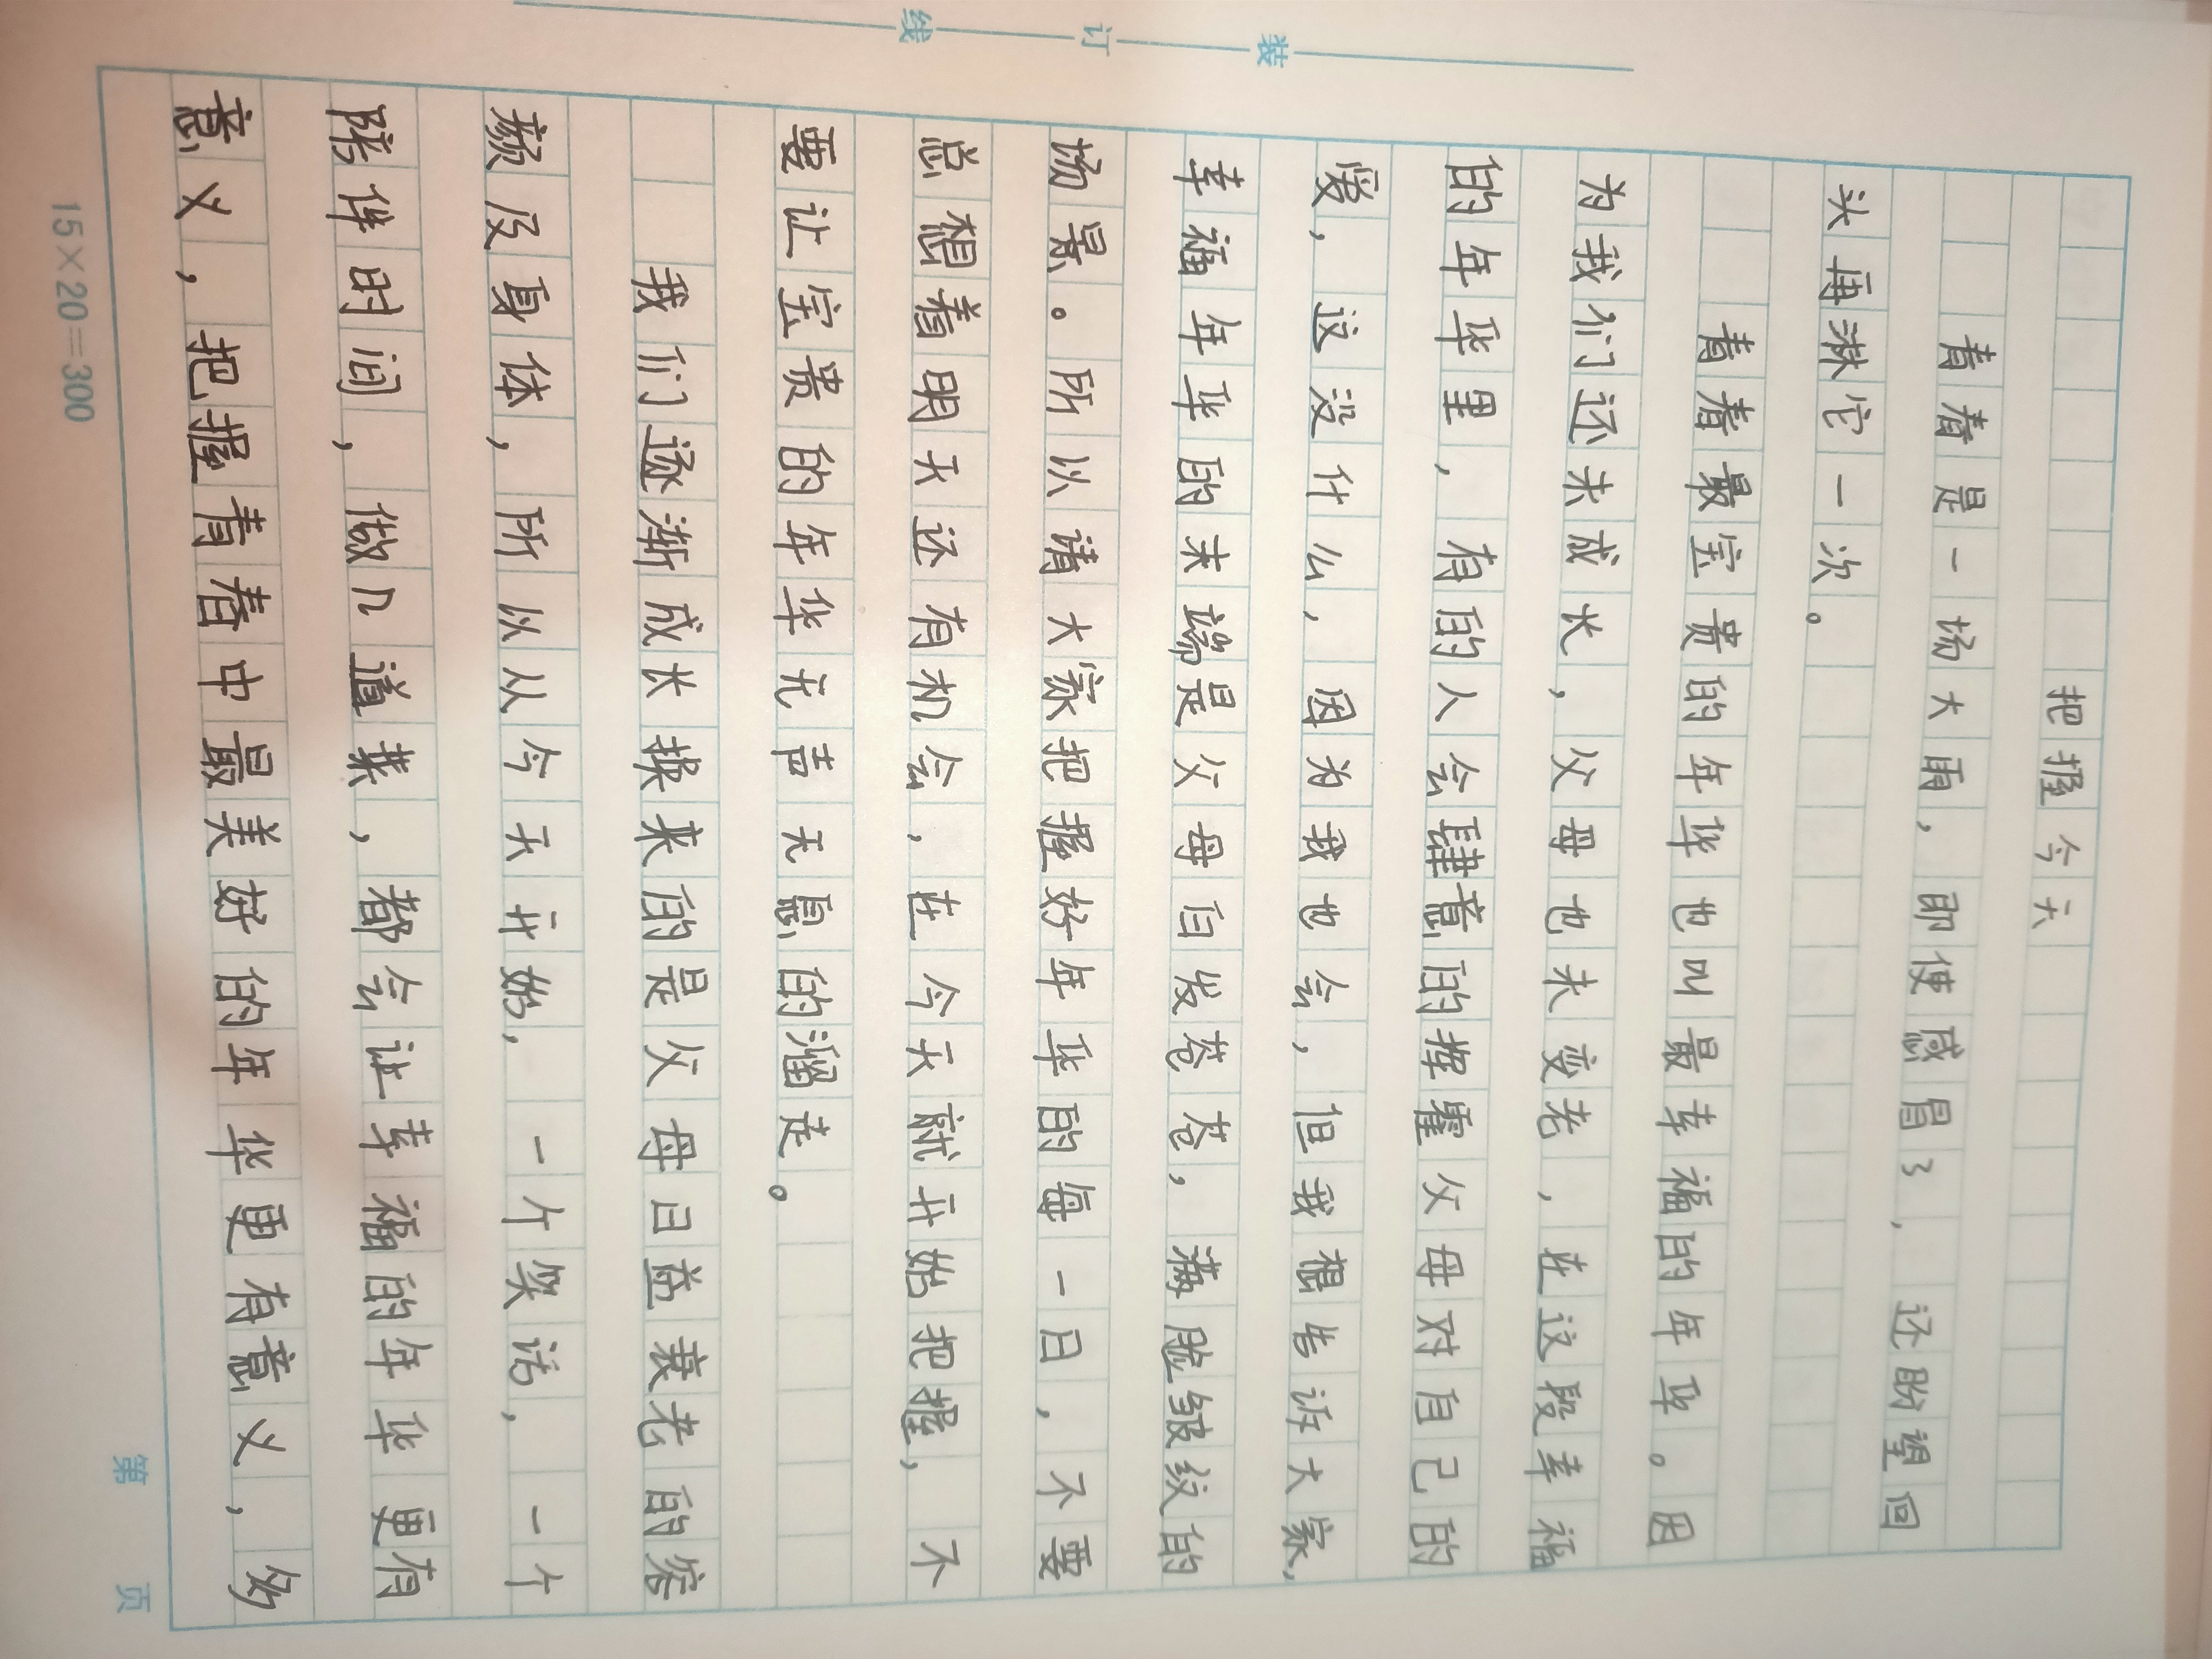 装订线
把握今天
青春是一场大雨，即使感冒了，还盼望回
头再淋它一次。
青春最宝贵的年华也叫最幸福的年华。因
为我们还未成长，父母也未变老，在这段幸福
的年华里，有的人会肆意的挥霍父母对自己的
爱，这没什么，因为我也会，但我想告诉大家，
幸福年华的末端是父母白发苍苍，满脸皱纹的
场景。所以请大家把握好年华的每一日，不要
总想着明天还有机会，在今天就开始把握，不
要让宝贵的年华无声无息的溜走。
我们逐渐成长换来的是父母日益衰老的容
颜及身体，所以从今天开始，一个笑话，一个
陪伴时间，做几道菜，都会让幸福的年华更有
意义，把握青春中最美好的年华更有意义，多
15×20=300
第 页